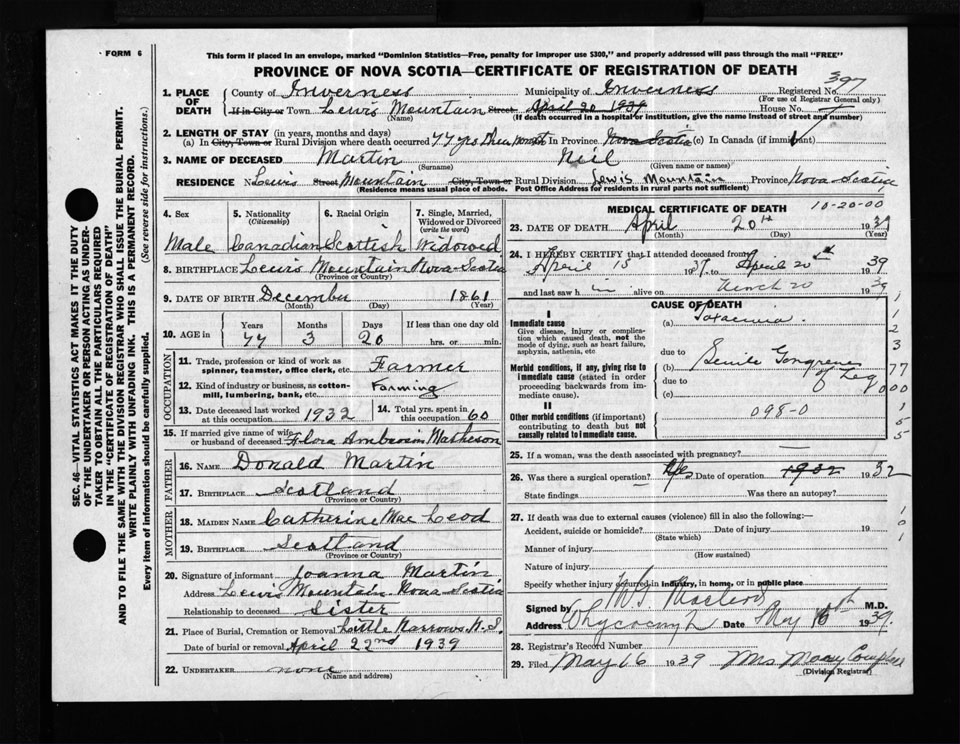 FORM 6
This form if placed in an envelope, marked "Dominion Statistics—Free, penalty for improper use $300," and properly addressed will pass through the mail "FREE"
PROVINCE OF NOVA SCOTIA—CERTIFICATE OF REGISTRATION OF DEATH
397
1. PLACE OF DEATH
County of Inverness Municipality of Inverness Registered No.
(For use of Registrar General only)
If in City or Town Lewis Mountain Street April 20 1939 House No.
(Name) (If death occurred in a hospital or institution, give the name instead of street and number)
2. LENGTH OF STAY (in years, months and days)
(a) In City, Town or Rural Division where death occurred 77 yrs In Nova Scotia (c) In Canada (if immigrant)
3. NAME OF DECEASED Martin Neil
(Surname) (Given name or names)
RESIDENCE No Lewis Street Mountain City, Town or Rural Division Lewis Mountain Province Nova Scotia
(Residence means usual place of abode. Post Office Address for residents in rural parts not sufficient)
SEC. 46—VITAL STATISTICS ACT MAKES IT THE DUTY
OF THE UNDERTAKER OR PERSON ACTING AS UNDER-
TAKER TO OBTAIN ALL THE PARTICULARS REQUIRED
IN THE "CERTIFICATE OF REGISTRATION OF DEATH"
AND TO FILE THE SAME WITH THE DIVISION REGISTRAR WHO SHALL ISSUE THE BURIAL PERMIT.
WRITE PLAINLY WITH UNFADING INK. THIS IS A PERMANENT RECORD.
Every item of information should be carefully supplied. (See reverse side for instructions.)
4. Sex
Male
5. Nationality
(Citizenship)
Canadian
6. Racial Origin
Scottish
7. Single, Married,
Widowed or Divorced
(write the word)
Widowed
8. BIRTHPLACE Lewis Mountain Nova-Scotia
(Province or Country)
9. DATE OF BIRTH December 1861
(Month) (Day) (Year)
10. AGE in
Years Months Days If less than one day old
77 3 20 hrs. or min.
OCCUPATION
11. Trade, profession or kind of work as
spinner, teamster, office clerk, etc. Farmer
12. Kind of industry or business, as cotton-
mill, lumbering, bank, etc. Farming
13. Date deceased last worked
at this occupation 1932
14. Total yrs. spent in
this occupation 60
15. If married give name of wife
or husband of deceased Flora Matheson
FATHER
16. NAME Donald Martin
17. BIRTHPLACE Scotland
(Province or Country)
MOTHER
18. MAIDEN NAME Catherine Mac Leod
19. BIRTHPLACE Scotland
(Province or Country)
20. Signature of informant Joanna Martin
Address Lewis Mountain Nova-Scotia
Relationship to deceased Sister
21. Place of Burial, Cremation or Removal Little Narrows, N.S.
Date of burial or removal April 22nd 1939
22. UNDERTAKER none
(Name and address)
MEDICAL CERTIFICATE OF DEATH
10-20-00
23. DATE OF DEATH April 20th 1939
(Month) (Day) (Year)
24. I HEREBY CERTIFY that I attended deceased from
April 15 1939 to April 20th 39
and last saw h im alive on March 20 1939
CAUSE OF DEATH
I
Immediate cause
Give disease, injury or complica-
tion which caused death, not the
mode of dying, such as heart failure,
asphyxia, asthenia, etc
(a) Toxaemia.
due to
Morbid conditions, if any, giving rise to
immediate cause (stated in order
proceeding backwards from im-
mediate cause).
(b) Senile Gangrene of Leg
due to
(c)
II
Other morbid conditions (if important)
contributing to death but not
causally related to immediate cause.
098-0
1
1
2
3
77
000
25. If a woman, was the death associated with pregnancy?
26. Was there a surgical operation? Yes Date of operation 1932 1932
State findings Was there an autopsy?
27. If death was due to external causes (violence) fill in also the following:—
Accident, suicide or homicide? Date of injury 19
(State which)
Manner of injury
(How sustained)
Nature of injury
Specify whether injury occurred in industry, in home, or in public place
Signed by Macleod M.D.
Address Whycocomagh Date May 1939.
28. Registrar's Record Number
29. Filed May 16 1939 Mrs
(Division Registrar)